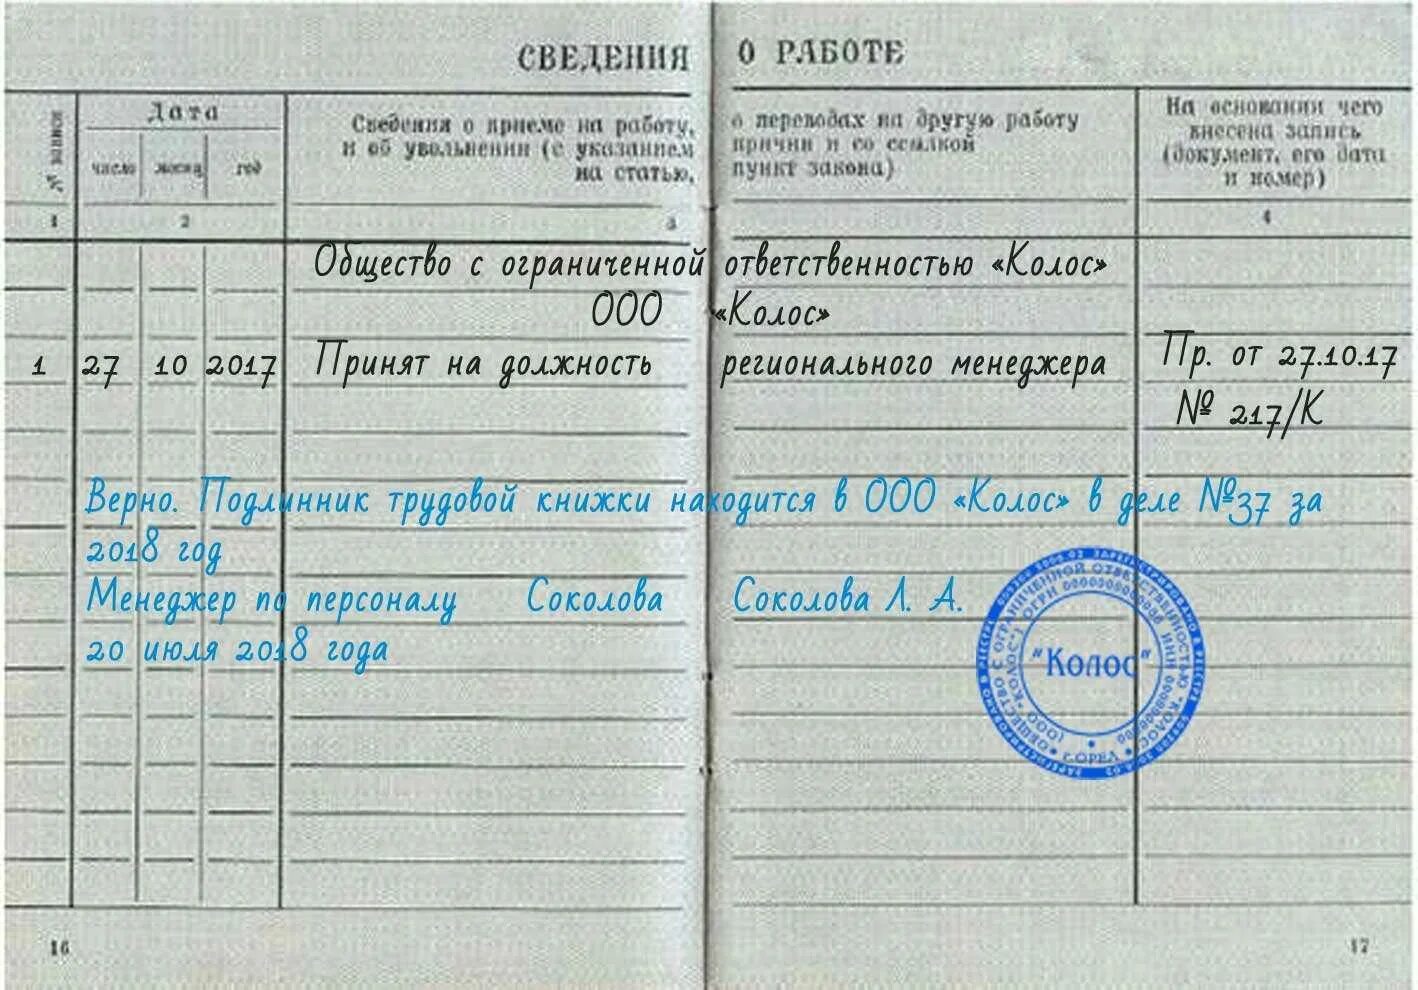 СВЕДЕНИЯ О РАБОТЕ
№ записи
Дата
число месяц год
Сведения о приеме на работу, о переводах на другую работу
и об увольнении (с указанием причин и со ссылкой
на статью, пункт закона)
На основании чего
внесена запись
(документ, его дата
и номер)
1 2 3 4
Общество с ограниченной ответственностью «Колос»
ООО «Колос»
1 27 10 2017 Принят на должность регионального менеджера Пр. от 27.10.17
№ 217/К
Верно. Подлинник трудовой книжки находится в ООО «Колос» в деле №37 за
2018 год
Менеджер по персоналу Соколова Соколова Л. А.
20 июля 2018 года
ОБЩЕСТВО С ОГРАНИЧЕННОЙ ОТВЕТСТВЕННОСТЬЮ "КОЛОС"
г.ОРЕЛ
(ООО "КОЛОС") ОГРН 0000000000000 ИНН 0000000000
"Колос"
16
17